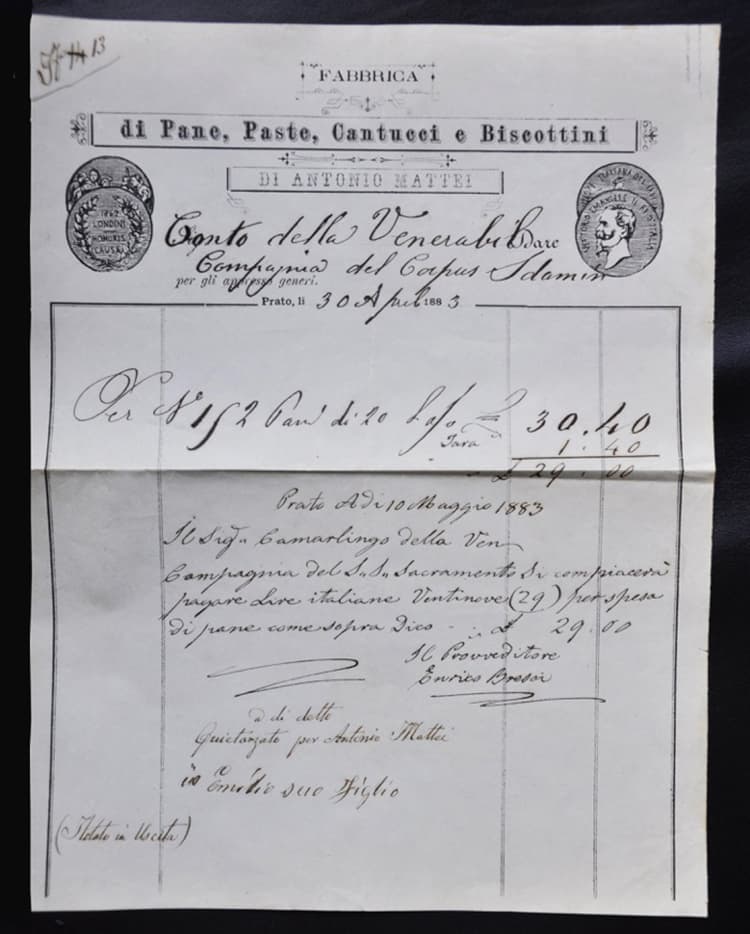 13
FABBRICA
di Pane, Paste, Cantucci e Biscottini
DI ANTONIO MATTEI
1862
LONDINI
HONORIS
CAUSA
VITTORIO EMANUELE II RE D'ITALIA
Conto della Venerabile Dare
Compagnia del Corpus Domini
per gli appresso generi.
Prato, li 30 April 1883
Per No 152 Pani di 20 £ 30.40
Tara 1.40
£ 29.00
Prato A di 10 Maggio 1883
Il Sigr Camarlingo della Ven
Compagnia del S.S. Sacramento Si compiacerà
pagare Lire italiane Ventinove (29) per spesa
di pane come sopra Dico £ 29.00
Il Provveditore
Enrico
a di detto
Quietanzato per Antonio Mattei
io Emilio suo Figlio
(Notato in Uscita)